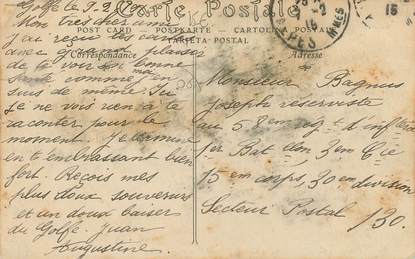 Carte Postale
POST CARD — POSTKARTE — CARTOLINA POSTALE
TARJETA POSTAL
Correspondance
Adresse
Golfe le 9.2.
Mon très cher ami
J'ai reçu ta carte
avec grand plaisir
de te voir en bonne
Santé comme ma
suis de même. Tu
je ne vois rien à te
raconter pour le
moment. Je termine
en t'embrassant bien
fort. Reçois mes
plus doux souvenirs
et un doux baiser
du Golfe. Juan
Augustine.
Monsieur Bagnus
Joseph réserviste
au 58em regt d'infterie
1er Bat llon, 3em Cie
15em corps, 30em division
Secteur Postal
130.